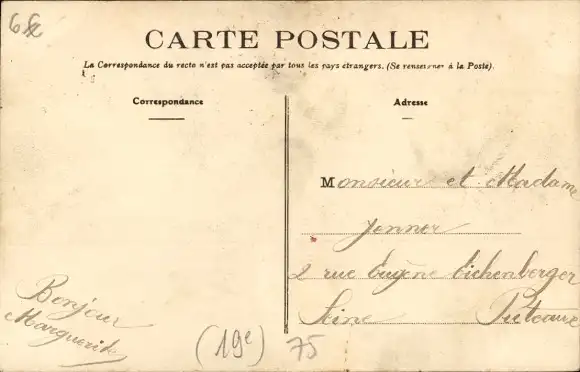 6f
CARTE POSTALE
La Correspondance du recto n'est pas acceptée par tous les pays étrangers. (Se renseigner à la Poste).
Correspondance
Adresse
Monsieur et Madame
Jenner
2 rue Eugène Eichenberger
Seine Puteaux
Bonjour
Marguerite
(19e) 75